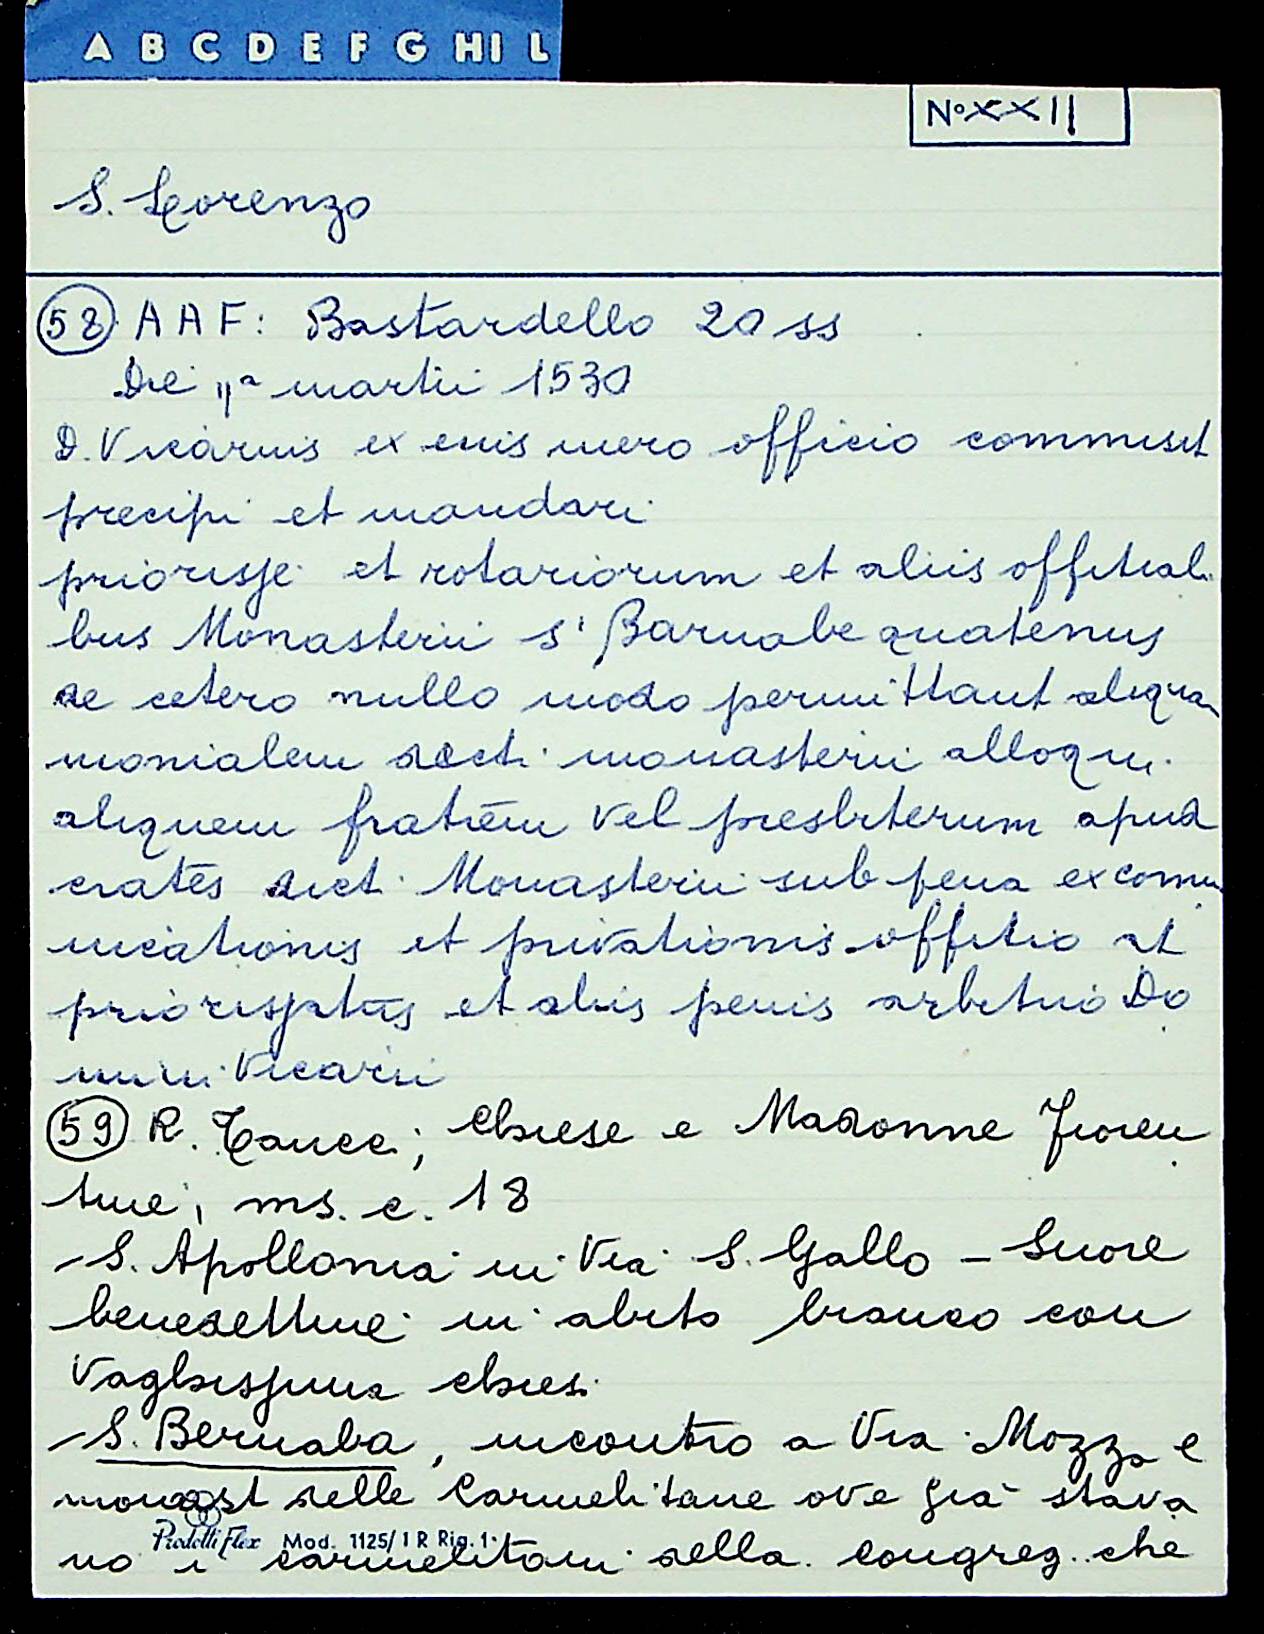 A B C D E F G HI L
N° XXII
S. Lorenzo
58 AAF: Bastardello 20 ss
Die martii 1530
D. Vicarius ex eius mero officio commisit
precipi et mandari
priorisse et rotariorum et aliis offitiali
bus Monasterii s' Barnabe quatenus
de cetero nullo modo permittant aliquam
monialem dicti monasterii alloqui
aliquem fratrēm vel presbiterum apud
cratēs dict. Monasterii sub pena excomu
nicationis et privationis offitio at
et aliis penis arbitrio Do
mini Vicarii
59 R. Tucci; Chiese e Madonne Fioren
tine, ms. c. 18
- S. Apollonia in Via S. Gallo - Suore
benedettine in abito bianco con
Vaghissima chies.
- S. Bernaba, incontro a Via Mozza e
monast delle Carmelitane ove già stava
no i carmelitani della congreg. che
Pratelli Flex Mod. 1125/1 R Rig. 1.